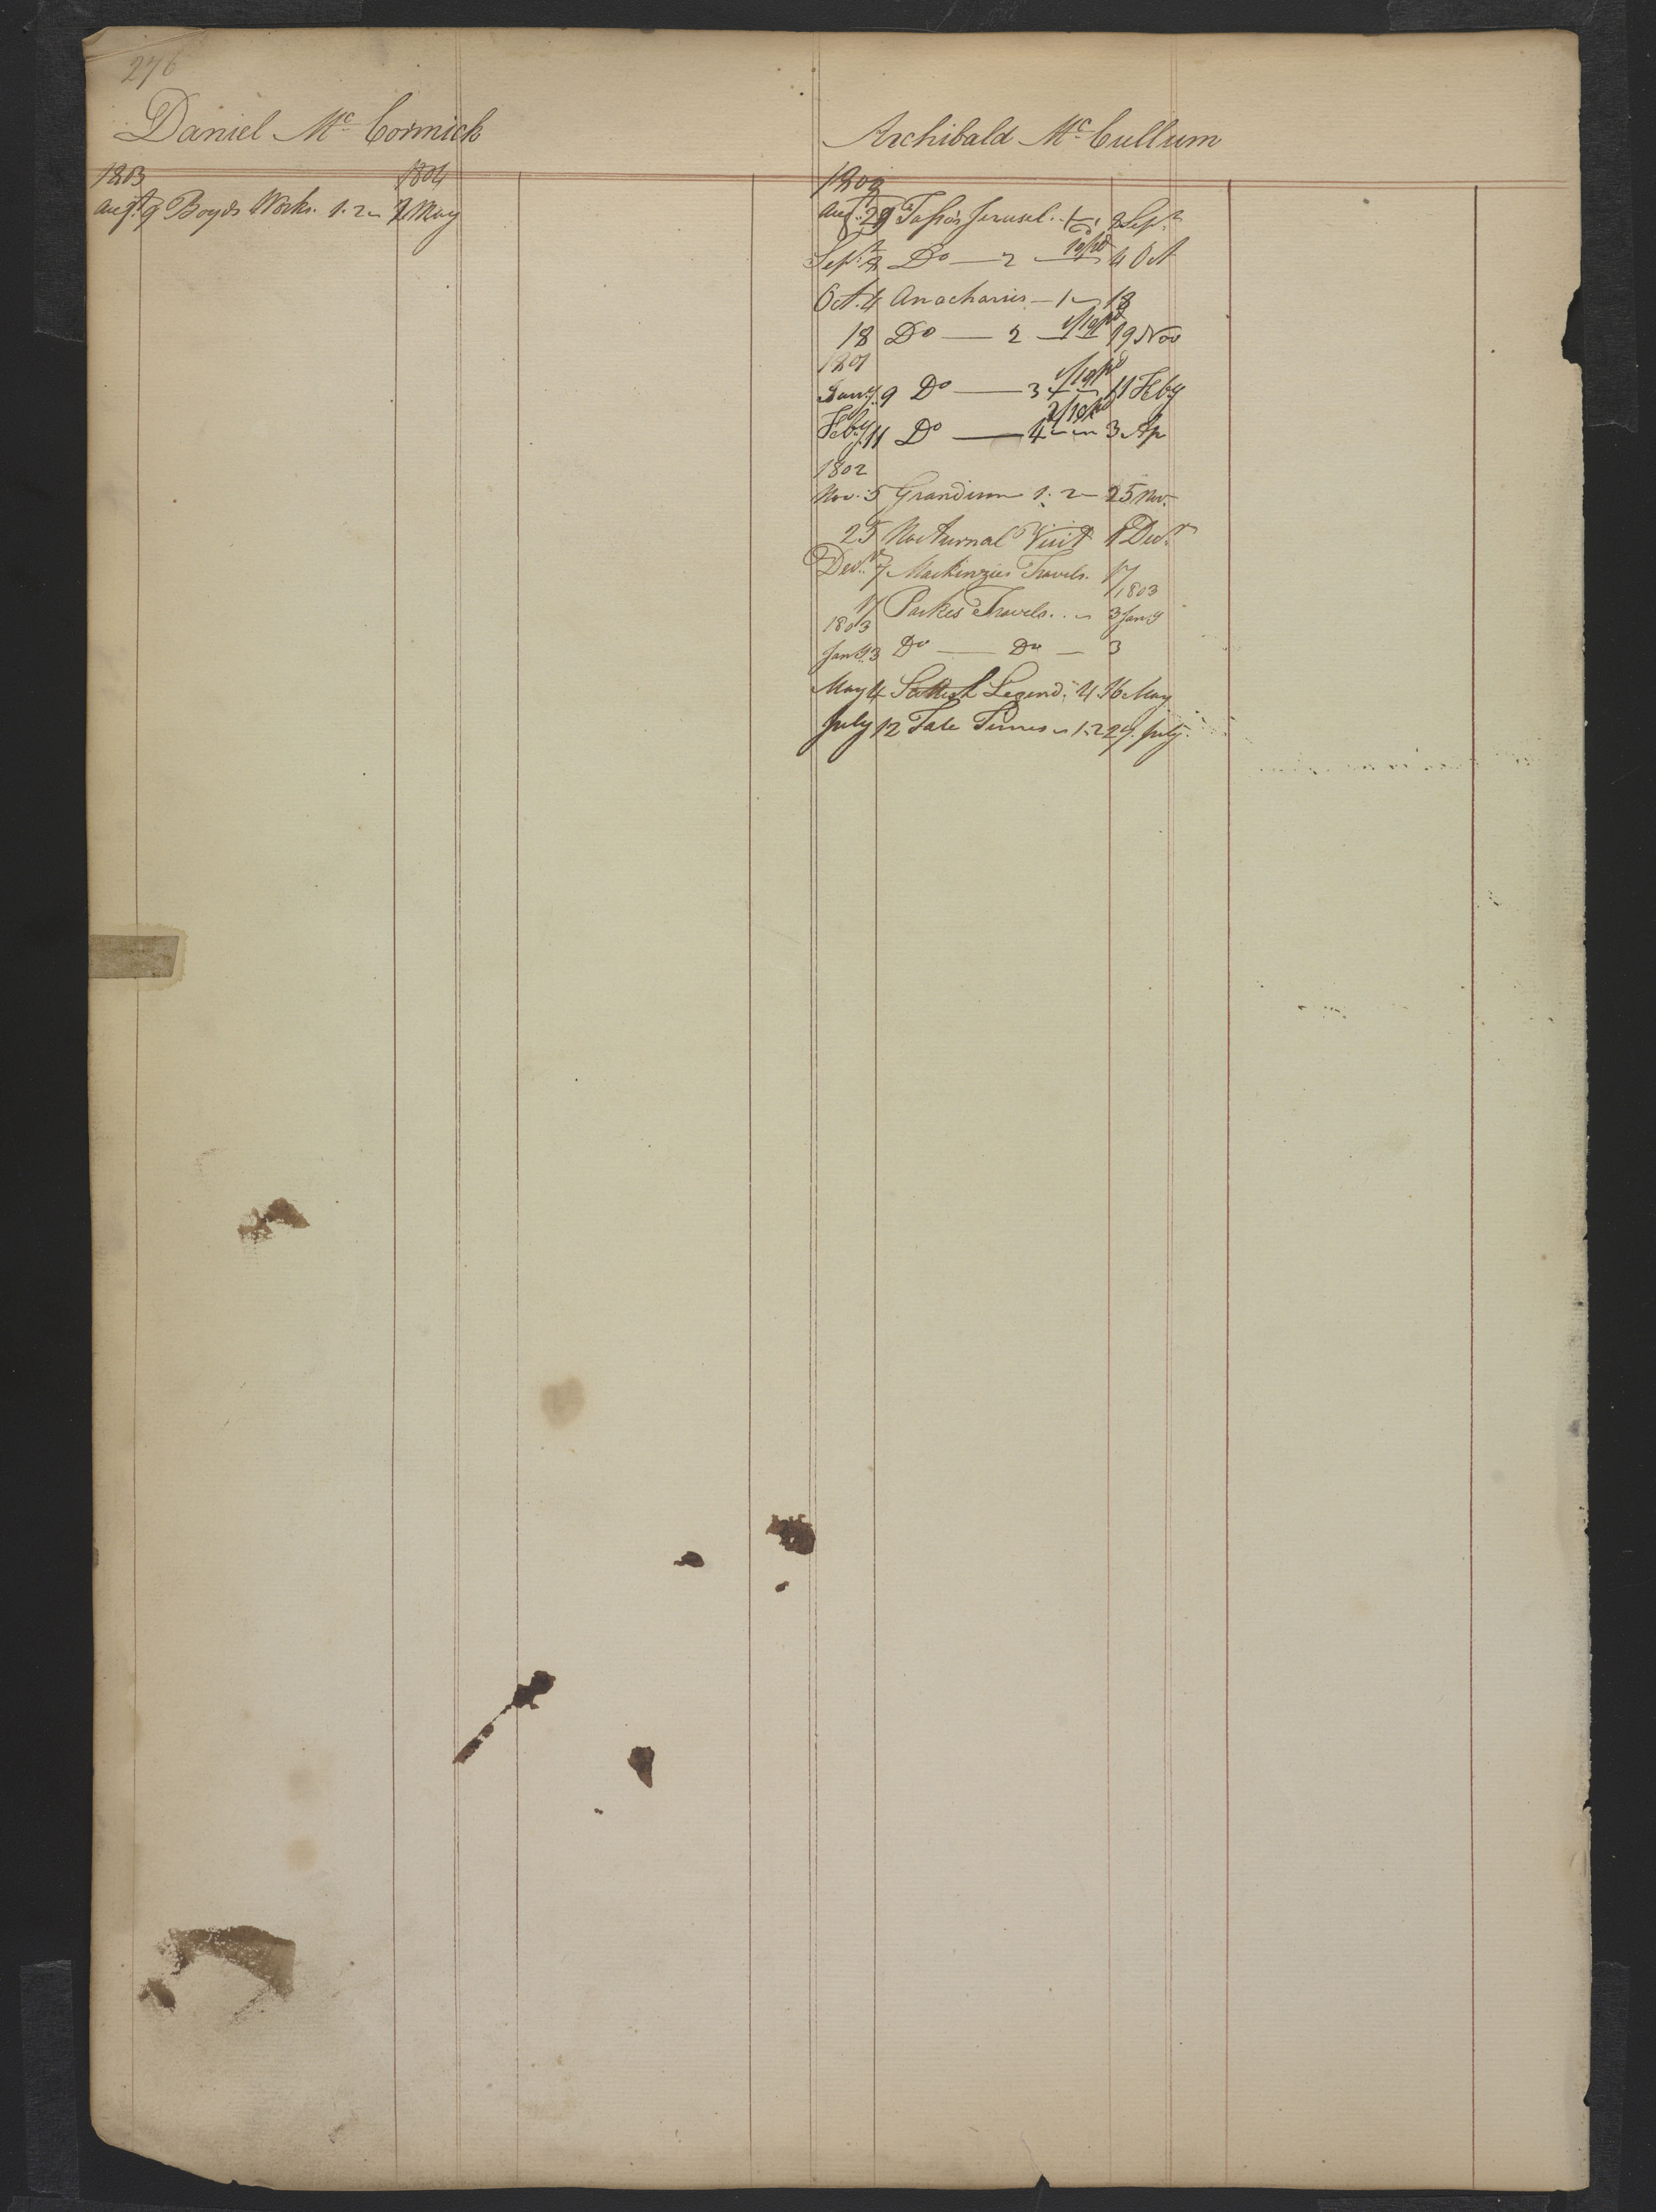 276
Daniel Mc Cormick
1803 1804
Augt 9 Boyds Works. 1. 2 7 May
Archibald Mc Cullum
1800
Aug. 29 Tasso's Jerusel. 1 8 Sepr
Sepr 8 Do — 2 4 Oct
Oct. 4 Anacharsis — 1 18
18 Do — 2 1/10pd 19 Nov
1801
Jany. 9 Do — 3 1/10pd 11 Feby
Feby. 11 Do — 4 2/10pd 3 Ap
1802
Nov. 5 Grandison 1. 2 25 Nov.
25 Nocturnal Visit Decr
Decr 7 Mackinzies Travels. 17
1803
17 Parkes Travels. 3 Jany
1803
Jany 3 Do — Do — 3
May 4 Scottish Legend. 4 16 May
July 12 Tale Times 1.2 29. July.